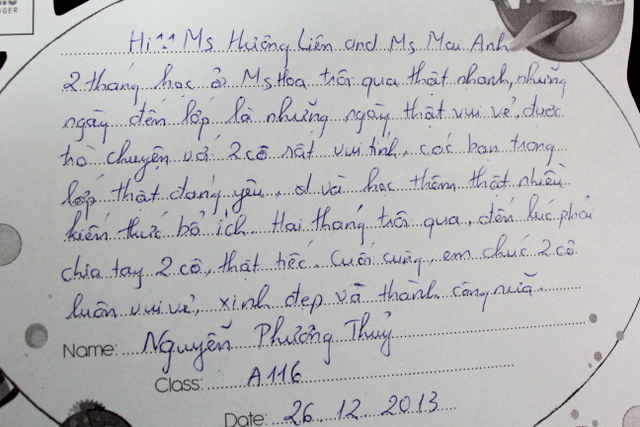 GER
Hi!! Ms Hương Liên and Ms Mai Anh
2 tháng học ở Ms Hoa trôi qua thật nhanh, những
ngày đến lớp là những ngày thật vui vẻ, được
trò chuyện với 2 cô rất vui tính, các bạn trong
lớp thật đáng yêu, và học thêm thật nhiều
kiến thức bổ ích. Hai tháng trôi qua, đến lúc phải
chia tay 2 cô, thật tiếc. Cuối cùng, em chúc 2 cô
luôn vui vẻ, xinh đẹp và thành công nữa.
Name: Nguyễn Phương Thuỷ
Class: A116
Date: 26.12.2013